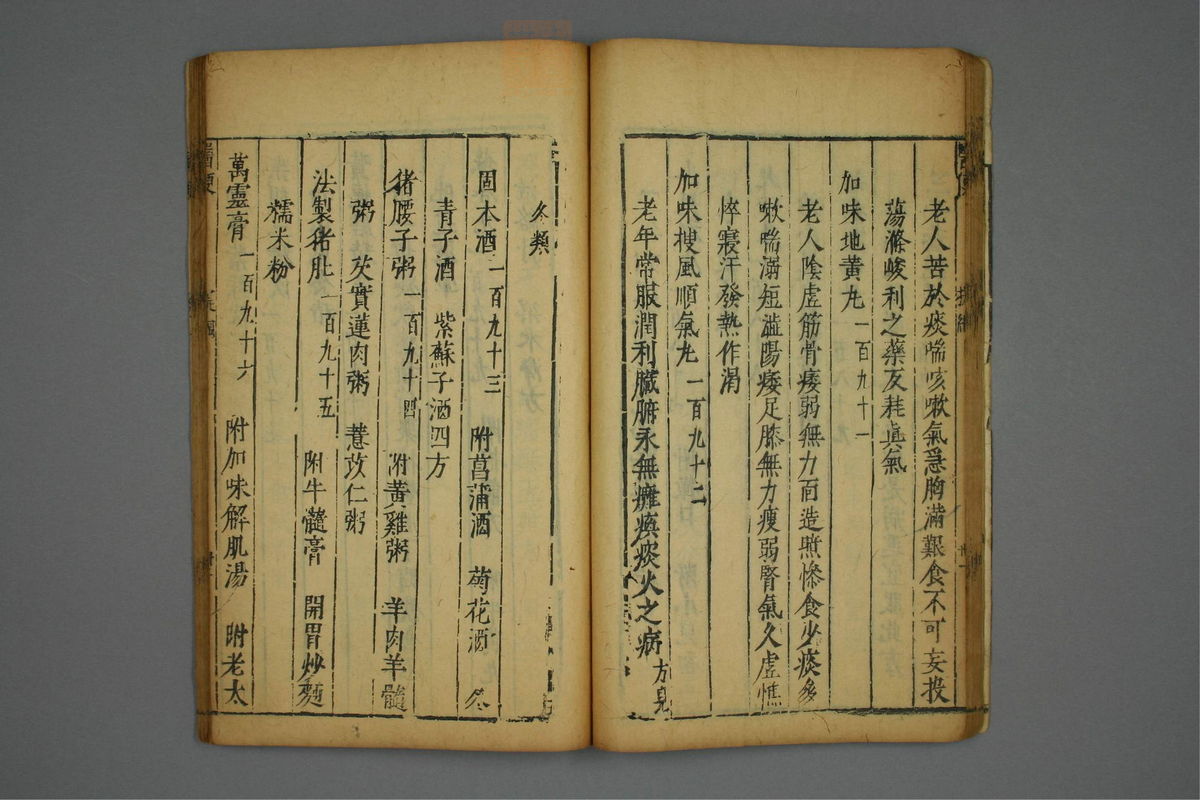 老人苦於痰喘咳嗽氣急胸滿艱食不可妄投
蕩滌峻利之藥反耗眞氣
加味地黄丸 一百九十一
老人陰虛筋骨痿弱無力面造㷖慘食少痰多
嗽喘溺短澁陽痿足膝無力瘦弱腎氣久虛憔
悴寢汗發熱作渴
加味搜風順氣丸 一百九十二
老年常服潤利臟腑永無癱瘓痰火之病 方見
冬類
固本酒 一百九十三 附菖蒲酒 菊花酒 冬
青子酒 紫蘇子酒四方
猪腰子粥 一百九十四 附黃雞粥 羊肉羊髓
粥 芡實蓮肉粥 薏苡仁粥
法製猪肚 一百九十五 附牛髓膏 開胃炒麵
糯米粉
萬靈膏 一百九十六 附加味解肌湯 附老太